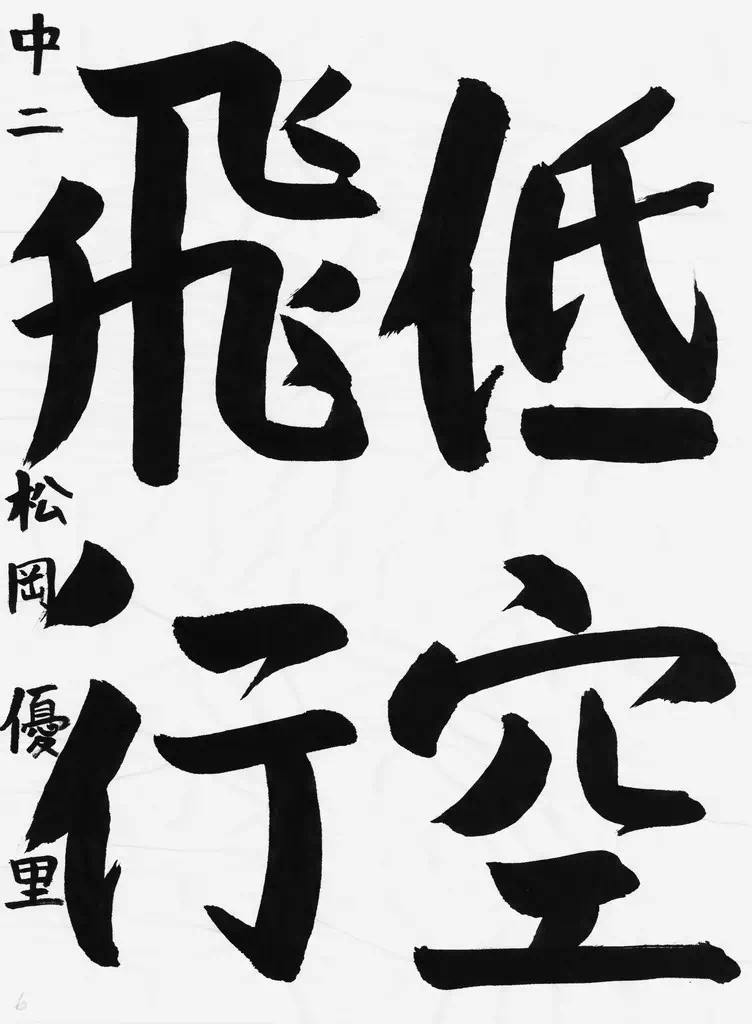 低空
飛行
中二 松岡優里
6